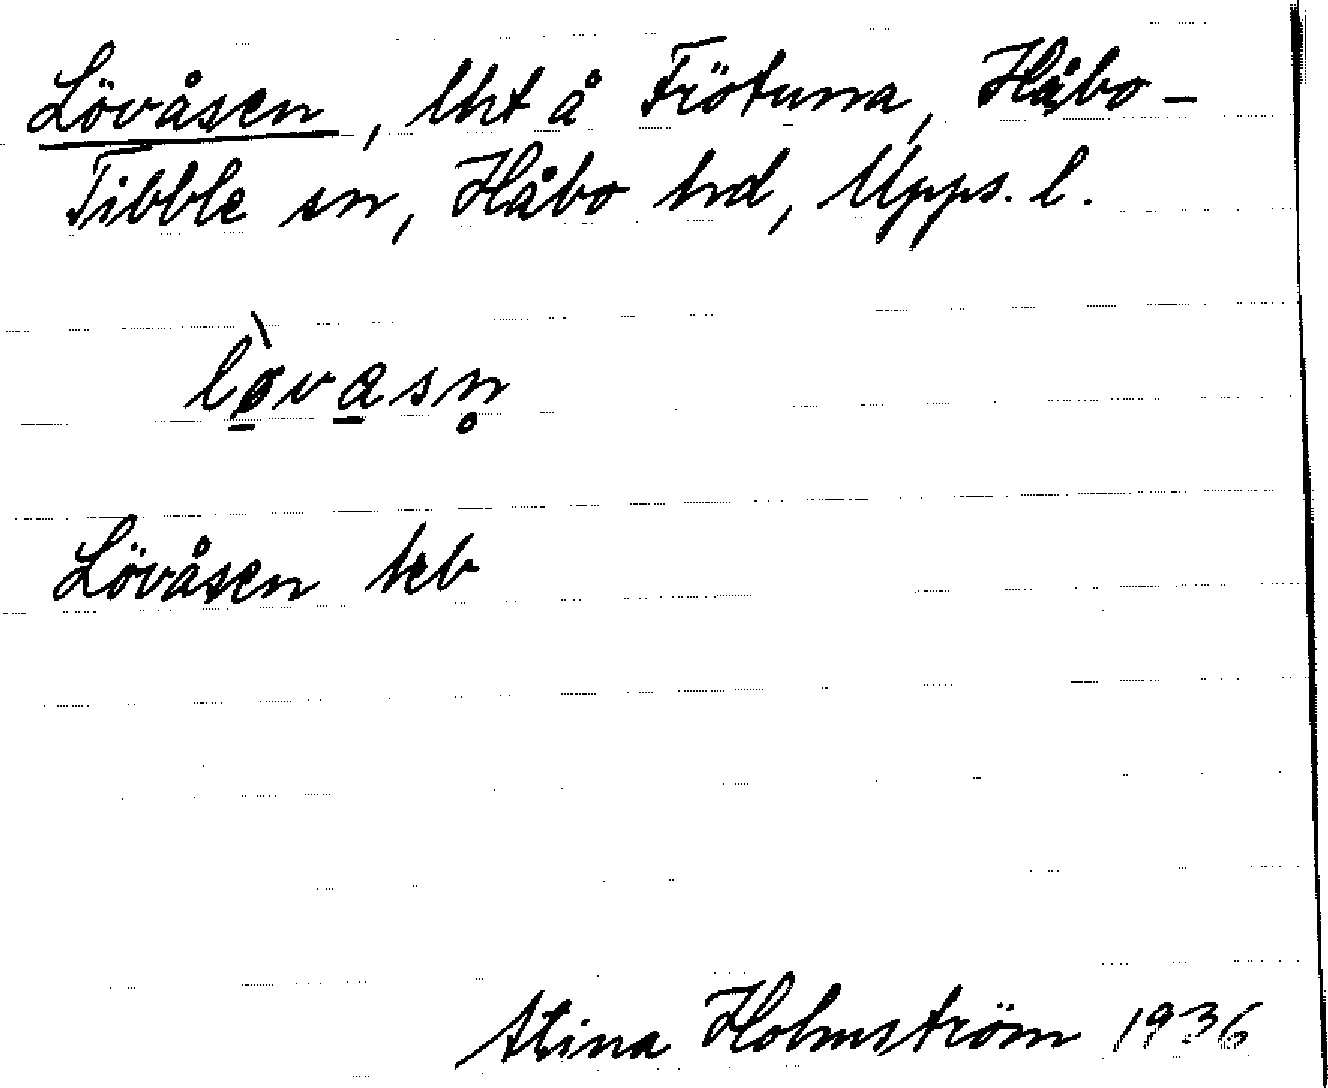 Lövåsen, lht å Frötuna, Håbo-
Tibble sn, Håbo hd, Upps. l.
lø̀vasn̥
Lövåsen heb
Stina Holmström 1936